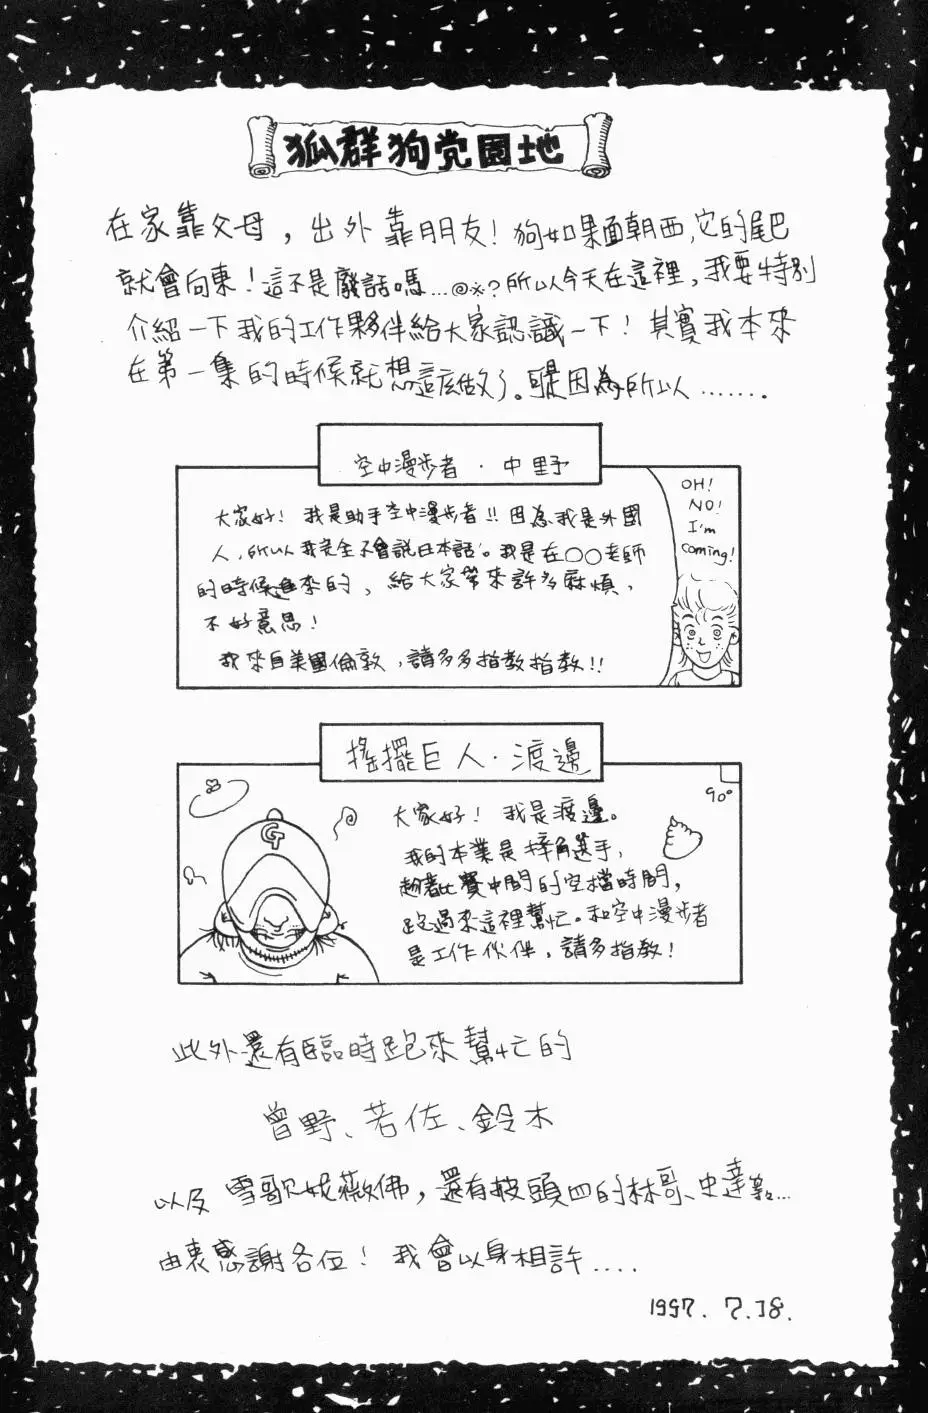 狐群狗党園地
在家靠父母，出外靠朋友！狗如果面朝西,它的尾巴
就會向東！這不是廢話嗎...@*?所以今天在這裡,我要特別
介紹一下我的工作夥伴給大家認識一下！其實我本來
在第一集的時候就想這麼做了。可是因為所以.......
空中漫步者．中野
大家好！我是助手空中漫步者!!因為我是外國
人,所以我完全不會說日本話。我是在○○老師
的時候進來的，給大家帶來許多麻煩，
不好意思！
我來自美國倫敦，請多多指教指教!!
OH!
NO!
I'm
coming!
搖擺巨人．渡邊
G
90°
大家好！我是渡邊。
我的本業是摔角選手,
趁著比賽中間的空檔時間,
跑過來這裡幫忙。和空中漫步者
是工作伙伴，請多指教！
此外還有臨時跑來幫忙的
曾野、若佐、鈴木
以及雪歌妮薇佛，還有披頭四的林哥、史達...
由衷感謝各位！我會以身相許....
1997.7.18.